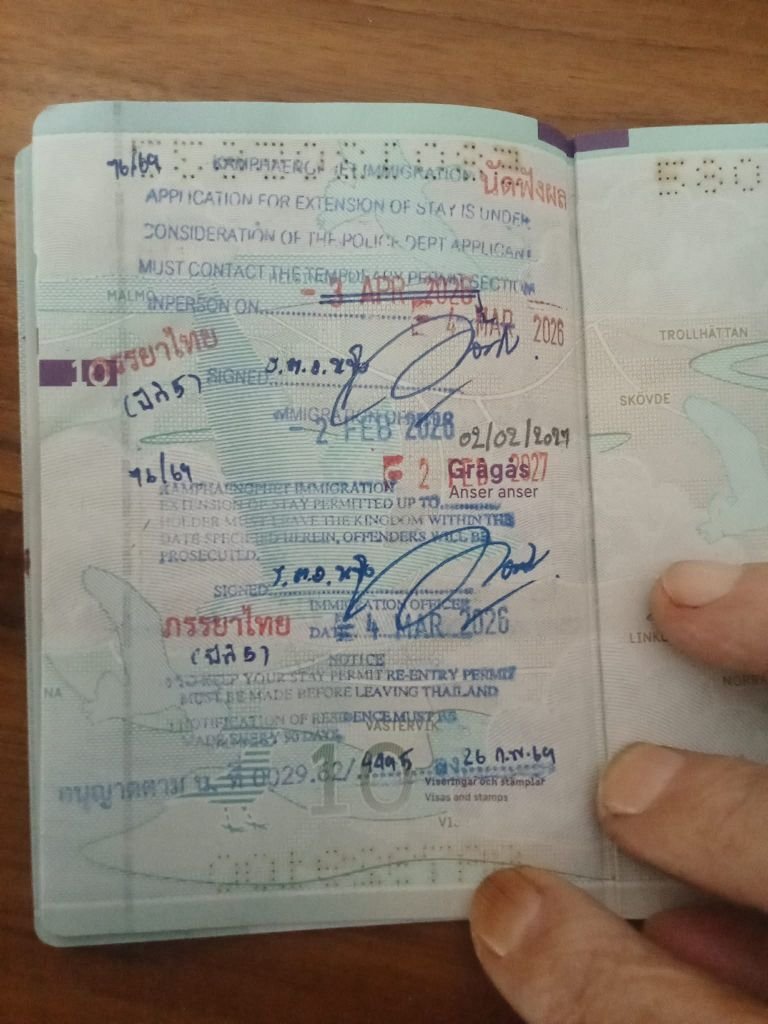 76/69
KAMPHAENGPHET IMMIGRATION
นัดฟังผล
APPLICATION FOR EXTENSION OF STAY IS UNDER
CONSIDERATION OF THE POLICE DEPT APPLICANT
MUST CONTACT THE TEMPORARY PERMIT SECTION
INPERSON ON
- 3 APR 2026
4 MAR 2026
MALMÖ
TROLLHÄTTAN
ภรรยาไทย
10
(ปีที่ 5)
SIGNED
SKÖVDE
IMMIGRATION OFFICER
- 2 FEB 2026
02/02/2027
76/69
2 FEB 2027
Grågås
Anser anser
KAMPHAENGPHET IMMIGRATION
EXTENSION OF STAY PERMITTED UP TO
HOLDER MUST LEAVE THE KINGDOM WITHIN THE
DATE SPECIFIED HEREIN, OFFENDERS WILL BE
PROSECUTED.
SIGNED
IMMIGRATION OFFICER
ภรรยาไทย
DATE 4 MAR 2026
(ปีที่ 5)
NOTICE
TO KEEP YOUR STAY PERMIT RE-ENTRY PERMIT
MUST BE MADE BEFORE LEAVING THAILAND
NOTIFICATION OF RESIDENCE MUST BE
MADE EVERY 90 DAYS
VÄSTERVIK
10
อนุญาตตาม น. ที่ 0029.62/9495 ลง 26 ก.พ. 69
Viseringar och stämplar
Visas and stamps